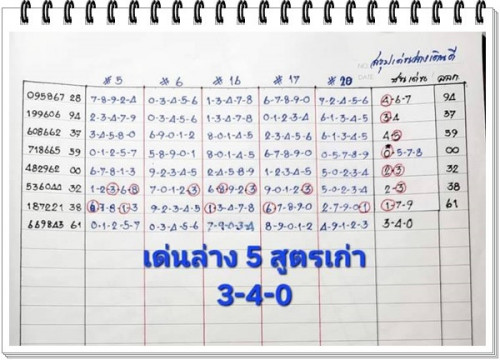 สรุปเด่นสายเดินดี
#5 #6 #16 #17 #20 ชนเด่น ผลออก
095867 28 7-8-9-2-4 0-3-4-5-6 1-3-4-7-8 6-7-8-9-0 7-2-4-5-6 4-6-7 94
199606 94 2-3-4-7-9 0-3-4-5-6 8-0-1-4-5 0-1-2-3-4 6-1-3-4-5 3-4 37
608662 37 3-4-5-8-0 6-9-0-1-2 8-0-1-4-5 4-5 39
718665 39 0-1-2-5-7 5-8-9-0-1 8-0-1-4-5 6-7-8-9-0 0-5-7-8-9 0-5-7-8 00
482962 00 6-7-8-1-3 9-2-3-4-5 5-0-2-3-4 2-3 32
536044 32 1-2-3-6-8 7-0-1-2-3 6-8-9-2-3 9-0-1-2-3 5-0-2-3-4 2-3 38
187221 38 6-7-8-1-3 9-2-3-4-5 1-3-4-7-8 6-7-8-9-0 2-7-9-0-1 1-7-9 61
669843 61 0-1-2-5-7 0-3-4-5-6 7-9-0-3-4 8-9-0-1-2 4-9-1-2-3 3-4-0
เด่นล่าง 5 สูตรเก่า
3-4-0